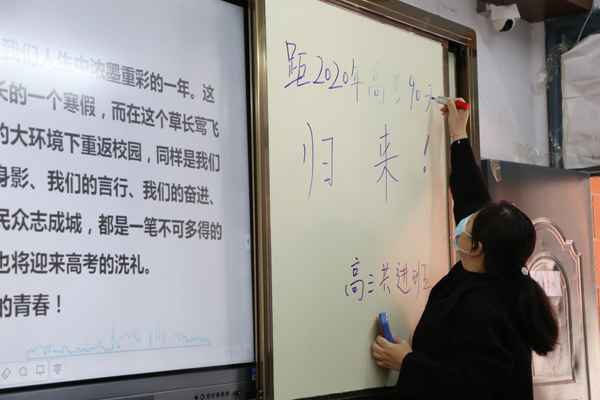 我们人生中浓墨重彩的一年。这
长的一个寒假，而在这个草长莺飞
的大环境下重返校园，同样是我们
身影、我们的言行、我们的奋进、
民众志成城，都是一笔不可多得的
也将迎来高考的洗礼。
的青春！
距2020年高考90天
归来！
高三共进班